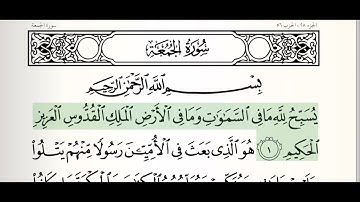 سورة الجمعة
الجزء ٢٨
سُورَةُ الْجُمُعَةِ
بِسْمِ اللَّهِ الرَّحْمَٰنِ الرَّحِيمِ
يُسَبِّحُ لِلَّهِ مَا فِي السَّمَٰوَٰتِ وَمَا فِي الْأَرْضِ الْمَلِكِ الْقُدُّوسِ الْعَزِيزِ
الْحَكِيمِ ١ هُوَ الَّذِي بَعَثَ فِي الْأُمِّيِّـۧنَ رَسُولًا مِّنْهُمْ يَتْلُوا۟